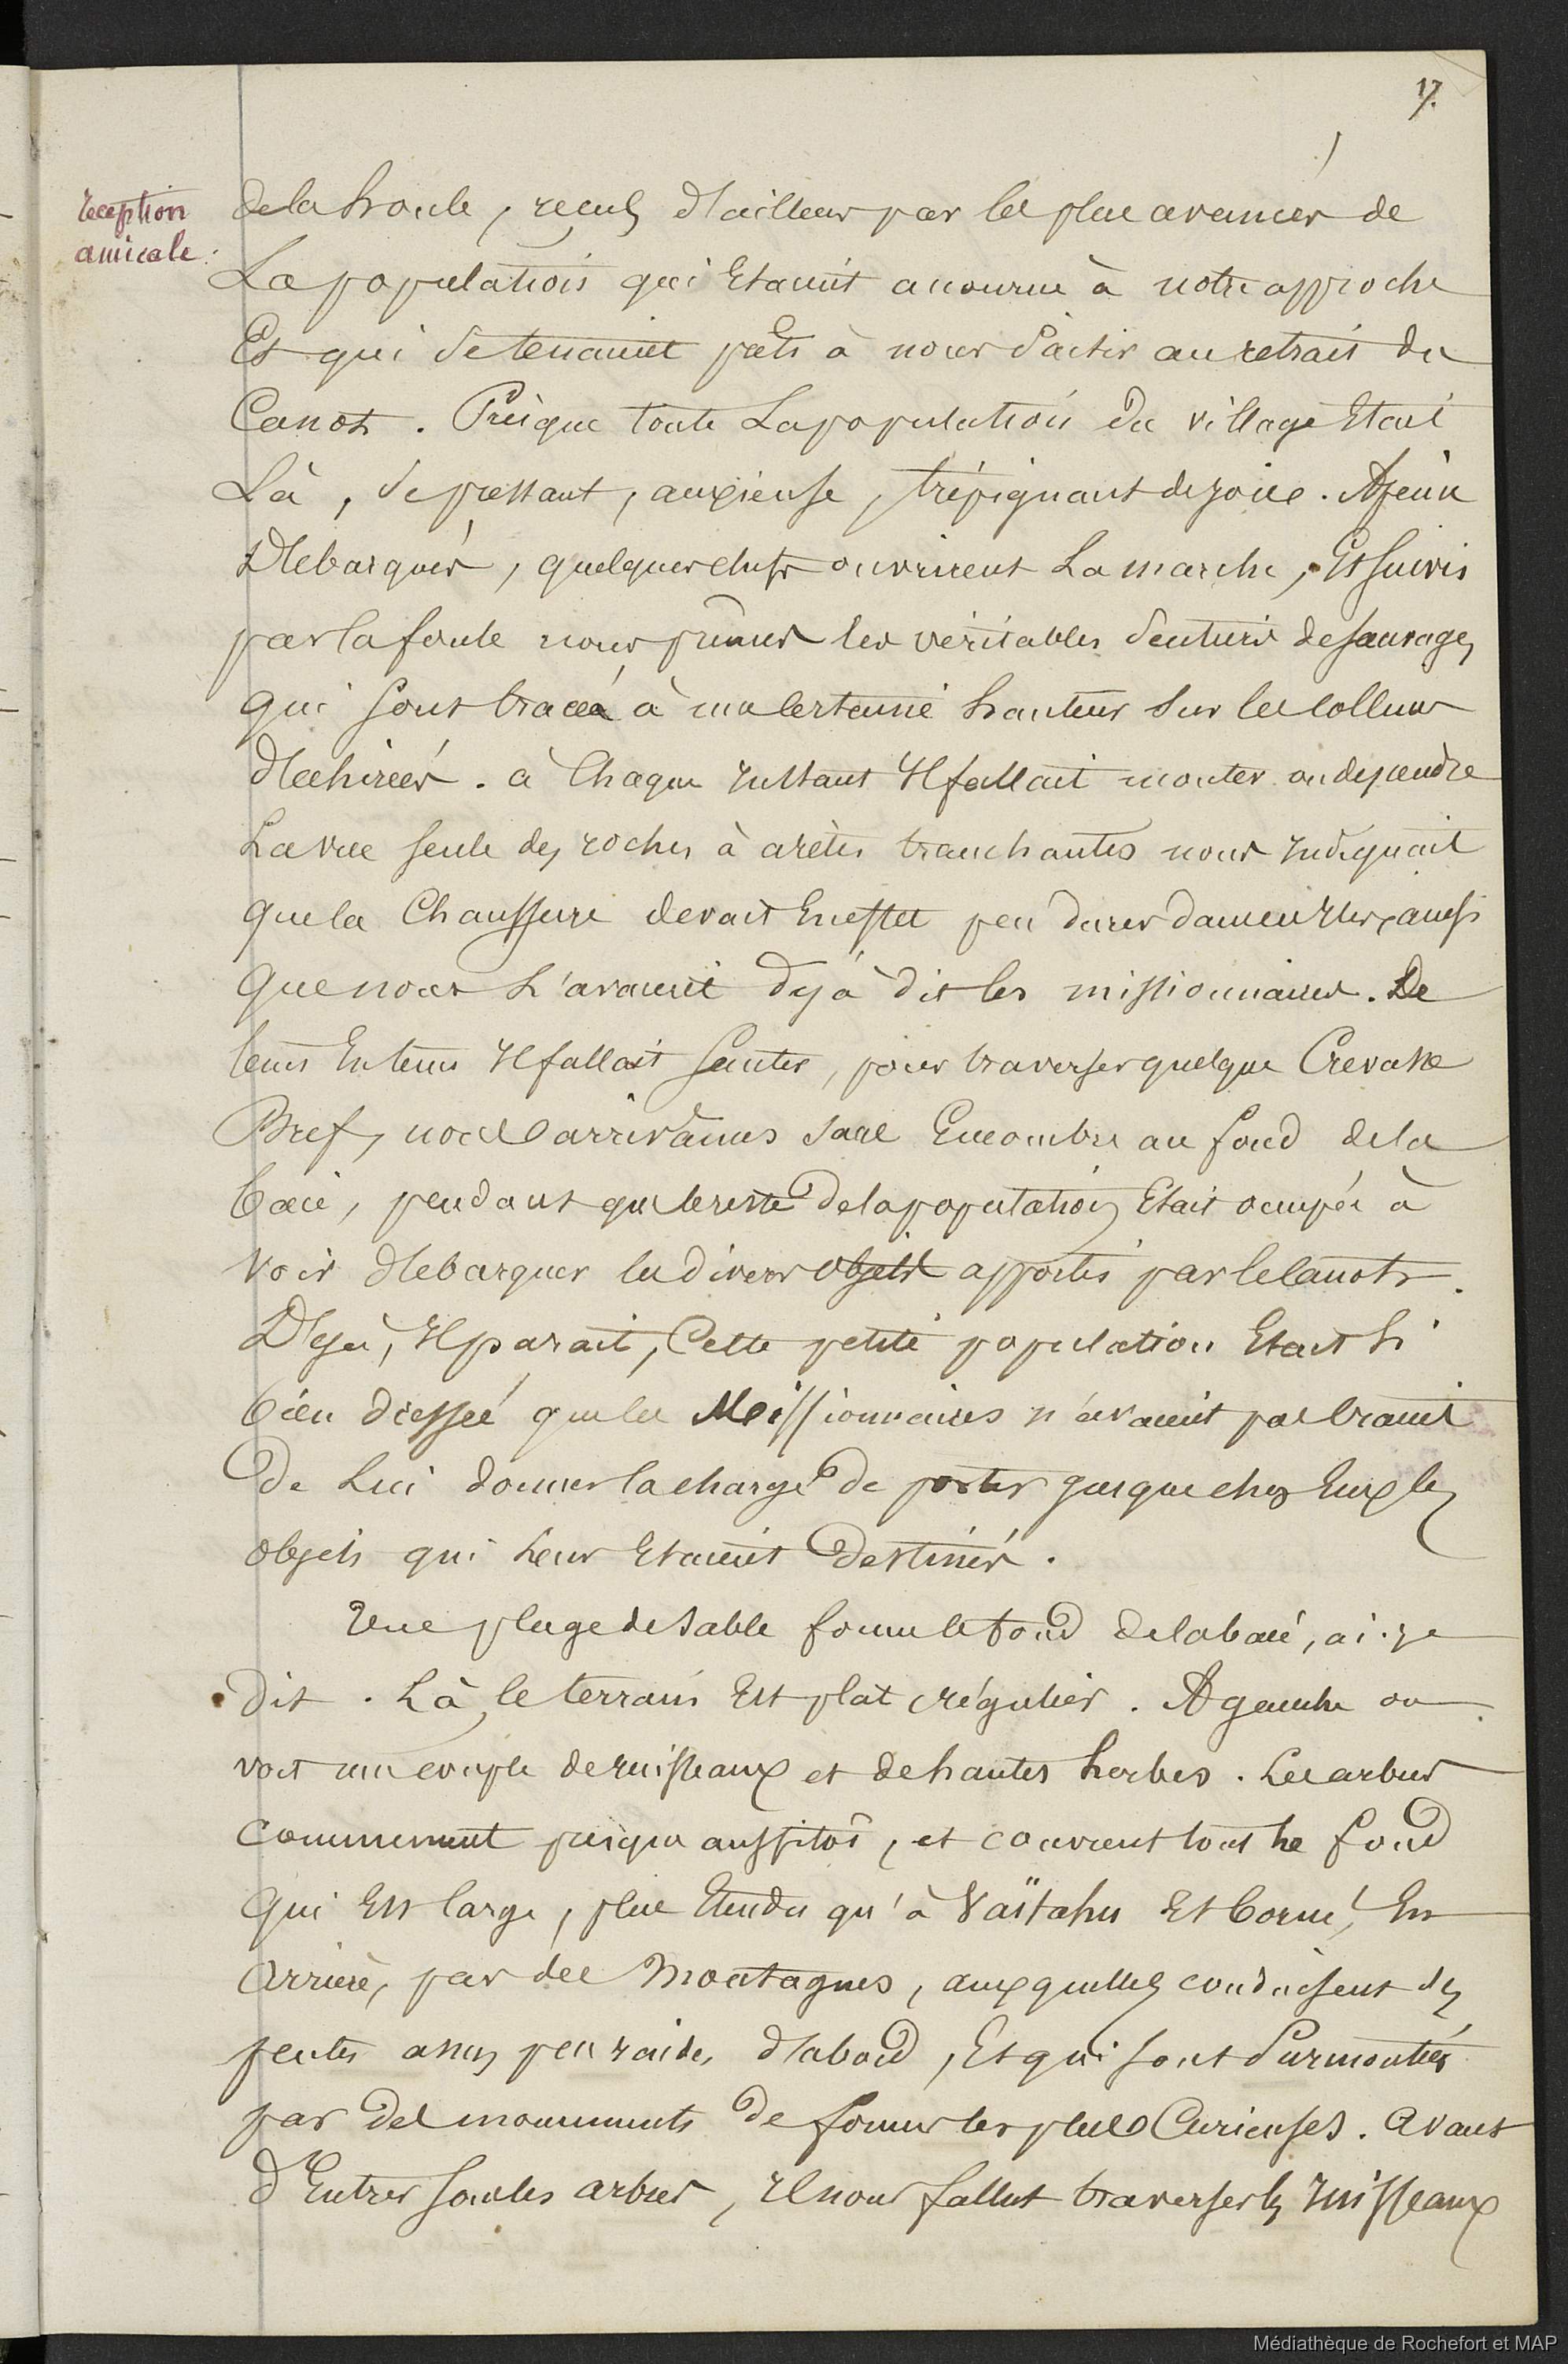 17.
réception
amicale.
de la houle, reçus d'ailleurs par les plus avancés de
La population qui Etaient accourue à notre approche
Et qui se tenaient prêts à nous d'aider au retrait du
Canot. Presque toute La population du village Etait
Là, se pressant, anxieuse, trépignant de joie. A peine
Débarqués, quelques chefs ouvrirent La marche, Et suivis
par la foule nous prîmes les véritables Sentiers de sauvages
qui sont tracés à une certaine hauteur sur les collines
déchirées. à Chaque instant Il fallait monter ou descendre
La vue seule des roches à arètes tranchantes nous indiquait
que la Chaussure devait En effet peu durer dans ces Iles, ainsi
que nous L'avaient déjà dit les missionnaires. De
tems En tems Il fallait sauter, pour traverser quelque Crevasse
Bref, nous arrivâmes sans Encombre au fond de la
baie, pendant que le reste de la population Etait occupée à
voir débarquer les divers objets apportés par le Canot.
Déjà, Il parait, Cette petite population Etait si
bien dressée que les Missionnaires n'avaient pas craint
De Lui donner la charge de porter jusque chez Eux les
objets qui Leur Etaient Destinés.
Une plage de sable forme le fond de la baie, ai-je
dit. Là, le terrain Est plat régulier. A gauche on
voit un couple de ruisseaux et de hautes herbes. Les arbres
commencent presque aussitôt, et couvrent tout le fond
qui Est large, plus Etendu qu'à Vaïtahu Et borné, En
Arrière, par des Montagnes, auxquelles conduisent des
pentes assez peu raides d'abord, Et qui sont Surmontées
par des monuments de formes les plus Curieuses. Avant
d'Entrer sous les arbres, Il nous fallut traverser les ruisseaux
Médiathèque de Rochefort et MAP